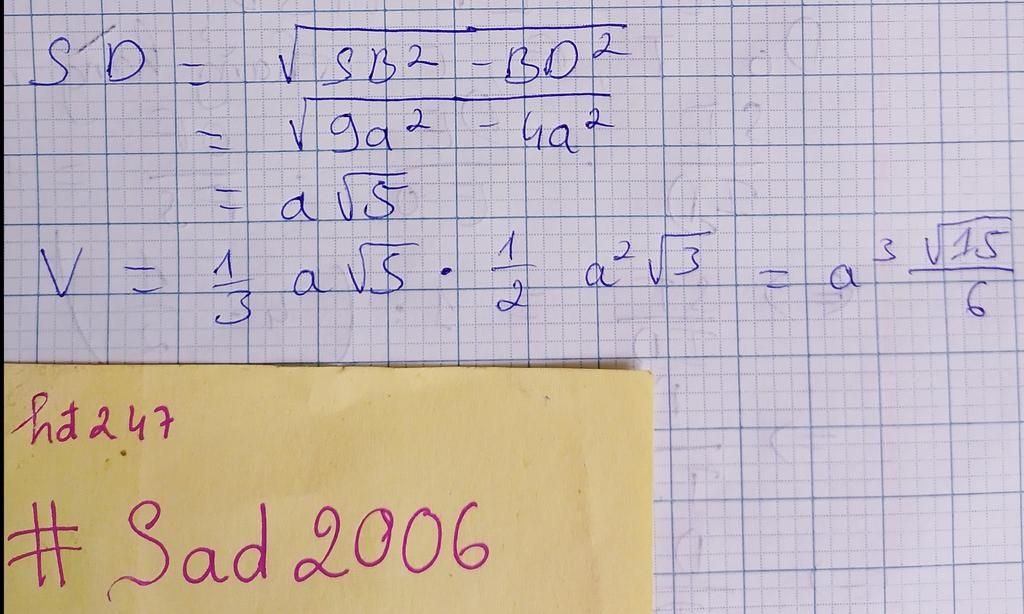 SD = √(SB² - BD²)
= √(9a² - 4a²)
= a√5
V = 1/3 a√5 · 1/2 a²√3 = a³ √15/6
hđ247
# Sad2006